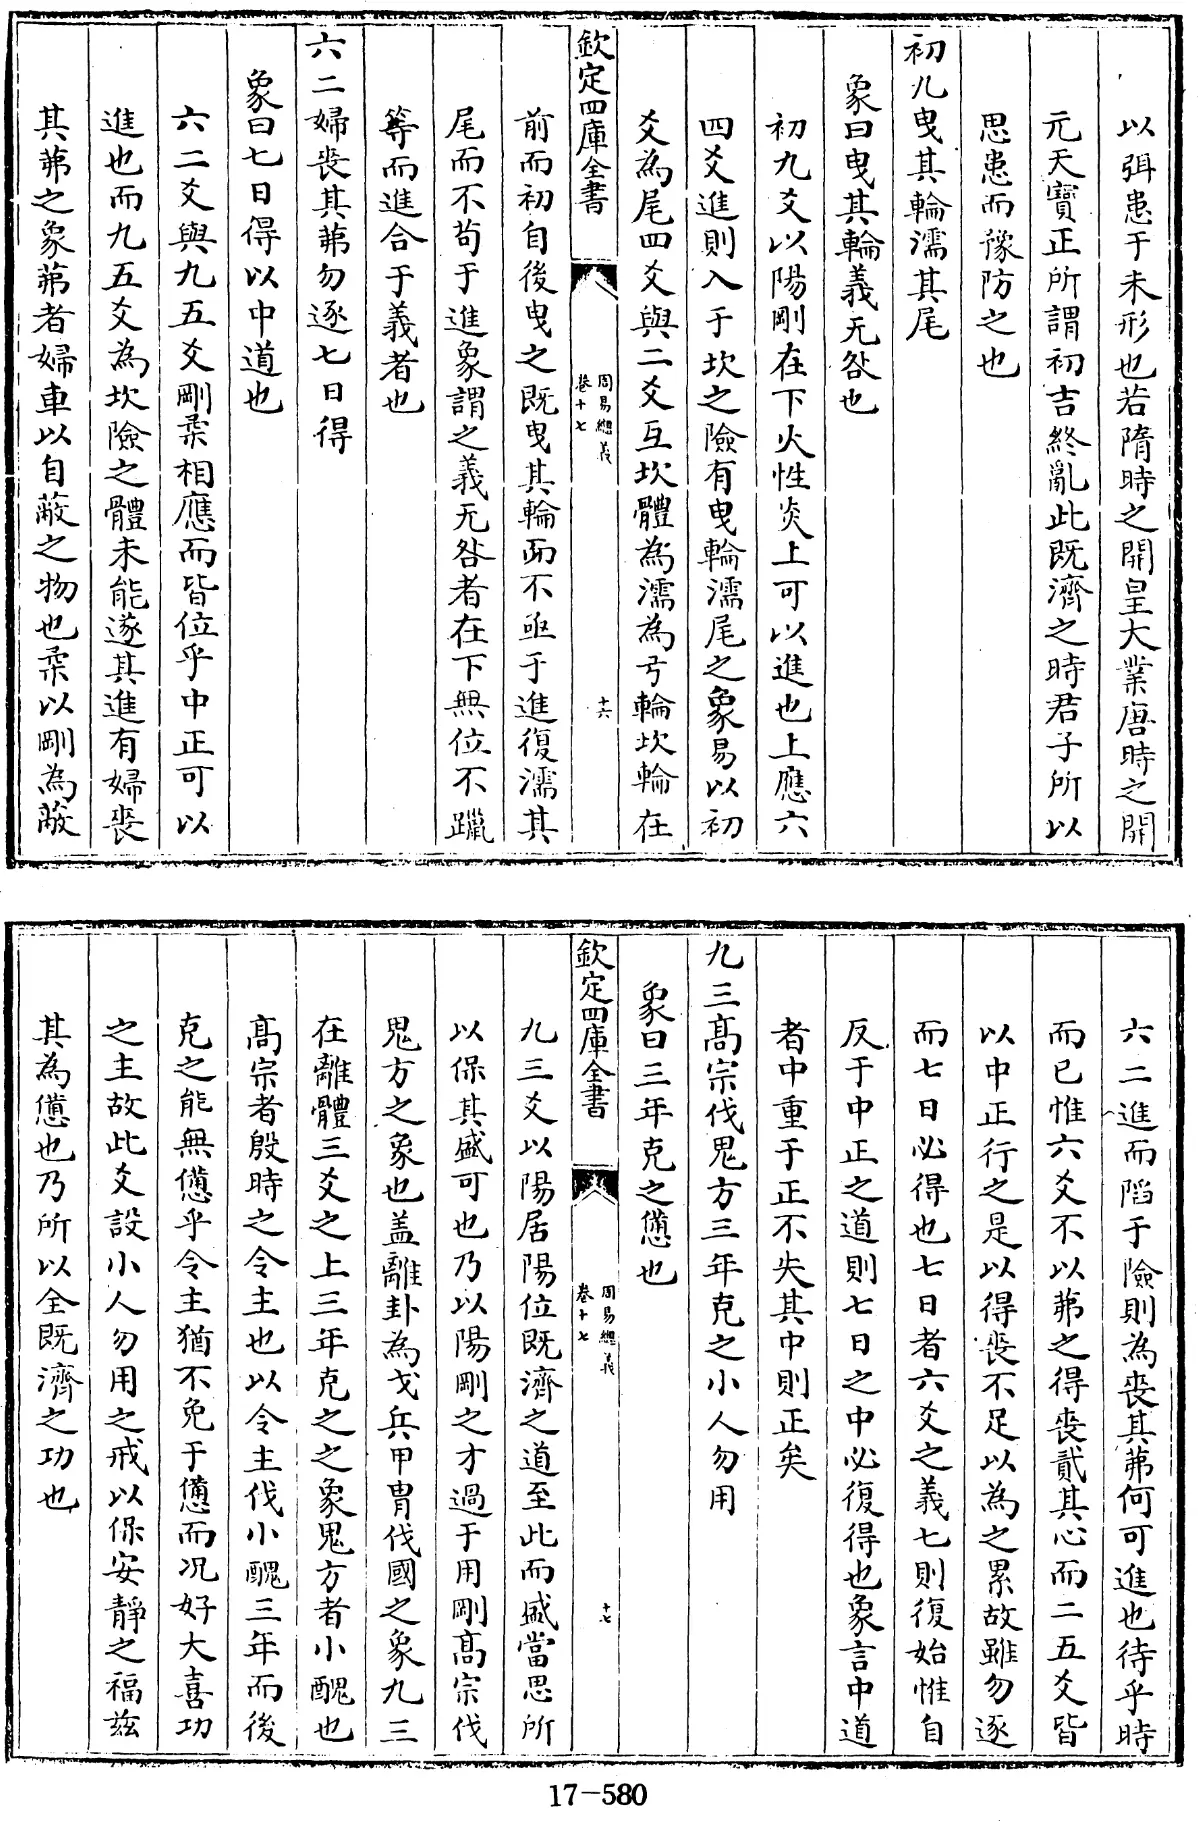 以弭患于未形也若隋時之開皇大業唐時之開
元天寶正所謂初吉終亂此既濟之時君子所以
思患而豫防之也
初九曳其輪濡其尾
象曰曳其輪義无咎也
初九爻以陽剛在下火性炎上可以進也上應六
四爻進則入于坎之險有曳輪濡尾之象易以初
爻為尾四爻與二爻互坎體為濡為弓輪坎輪在
欽定四庫全書
周易總義
卷十七
十六
前而初自後曳之既曳其輪而不亟于進復濡其
尾而不茍于進象謂之義无咎者在下無位不躐
等而進合于義者也
六二婦喪其茀勿逐七日得
象曰七日得以中道也
六二爻與九五爻剛柔相應而皆位乎中正可以
進也而九五爻為坎險之體未能遂其進有婦喪
其茀之象茀者婦車以自蔽之物也柔以剛為蔽
六二進而陷于險則為喪其茀何可進也待乎時
而已惟六爻不以茀之得喪貳其心而二五爻皆
以中正行之是以得喪不足以為之累故雖勿逐
而七日必得也七日者六爻之義七則復始惟自
反于中正之道則七日之中必復得也象言中道
者中重于正不失其中則正矣
九三髙宗伐鬼方三年克之小人勿用
象曰三年克之憊也
欽定四庫全書
周易總義
卷十七
十七
九三爻以陽居陽位既濟之道至此而盛當思所
以保其盛可也乃以陽剛之才過于用剛髙宗伐
鬼方之象也盖離卦為戈兵甲胄伐國之象九三
在離體三爻之上三年克之之象鬼方者小醜也
髙宗者殷時之令主也以令主伐小醜三年而後
克之能無憊乎令主猶不免于憊而况好大喜功
之主故此爻設小人勿用之戒以保安靜之福茲
其為憊也乃所以全既濟之功也
17-580